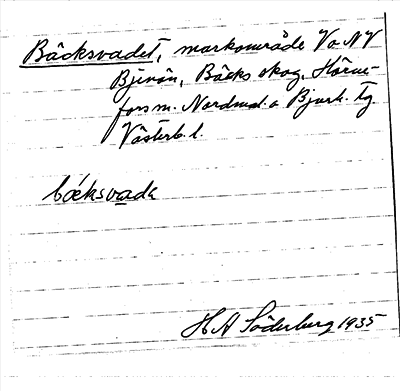 Bäcksvadet, markområde V o N V
Bjenön, Bäcks skog, Hörne-
fors m. Nordmal. o Bjurh. tg
Västerb. l.
bǽksvada
H A Söderberg 1935